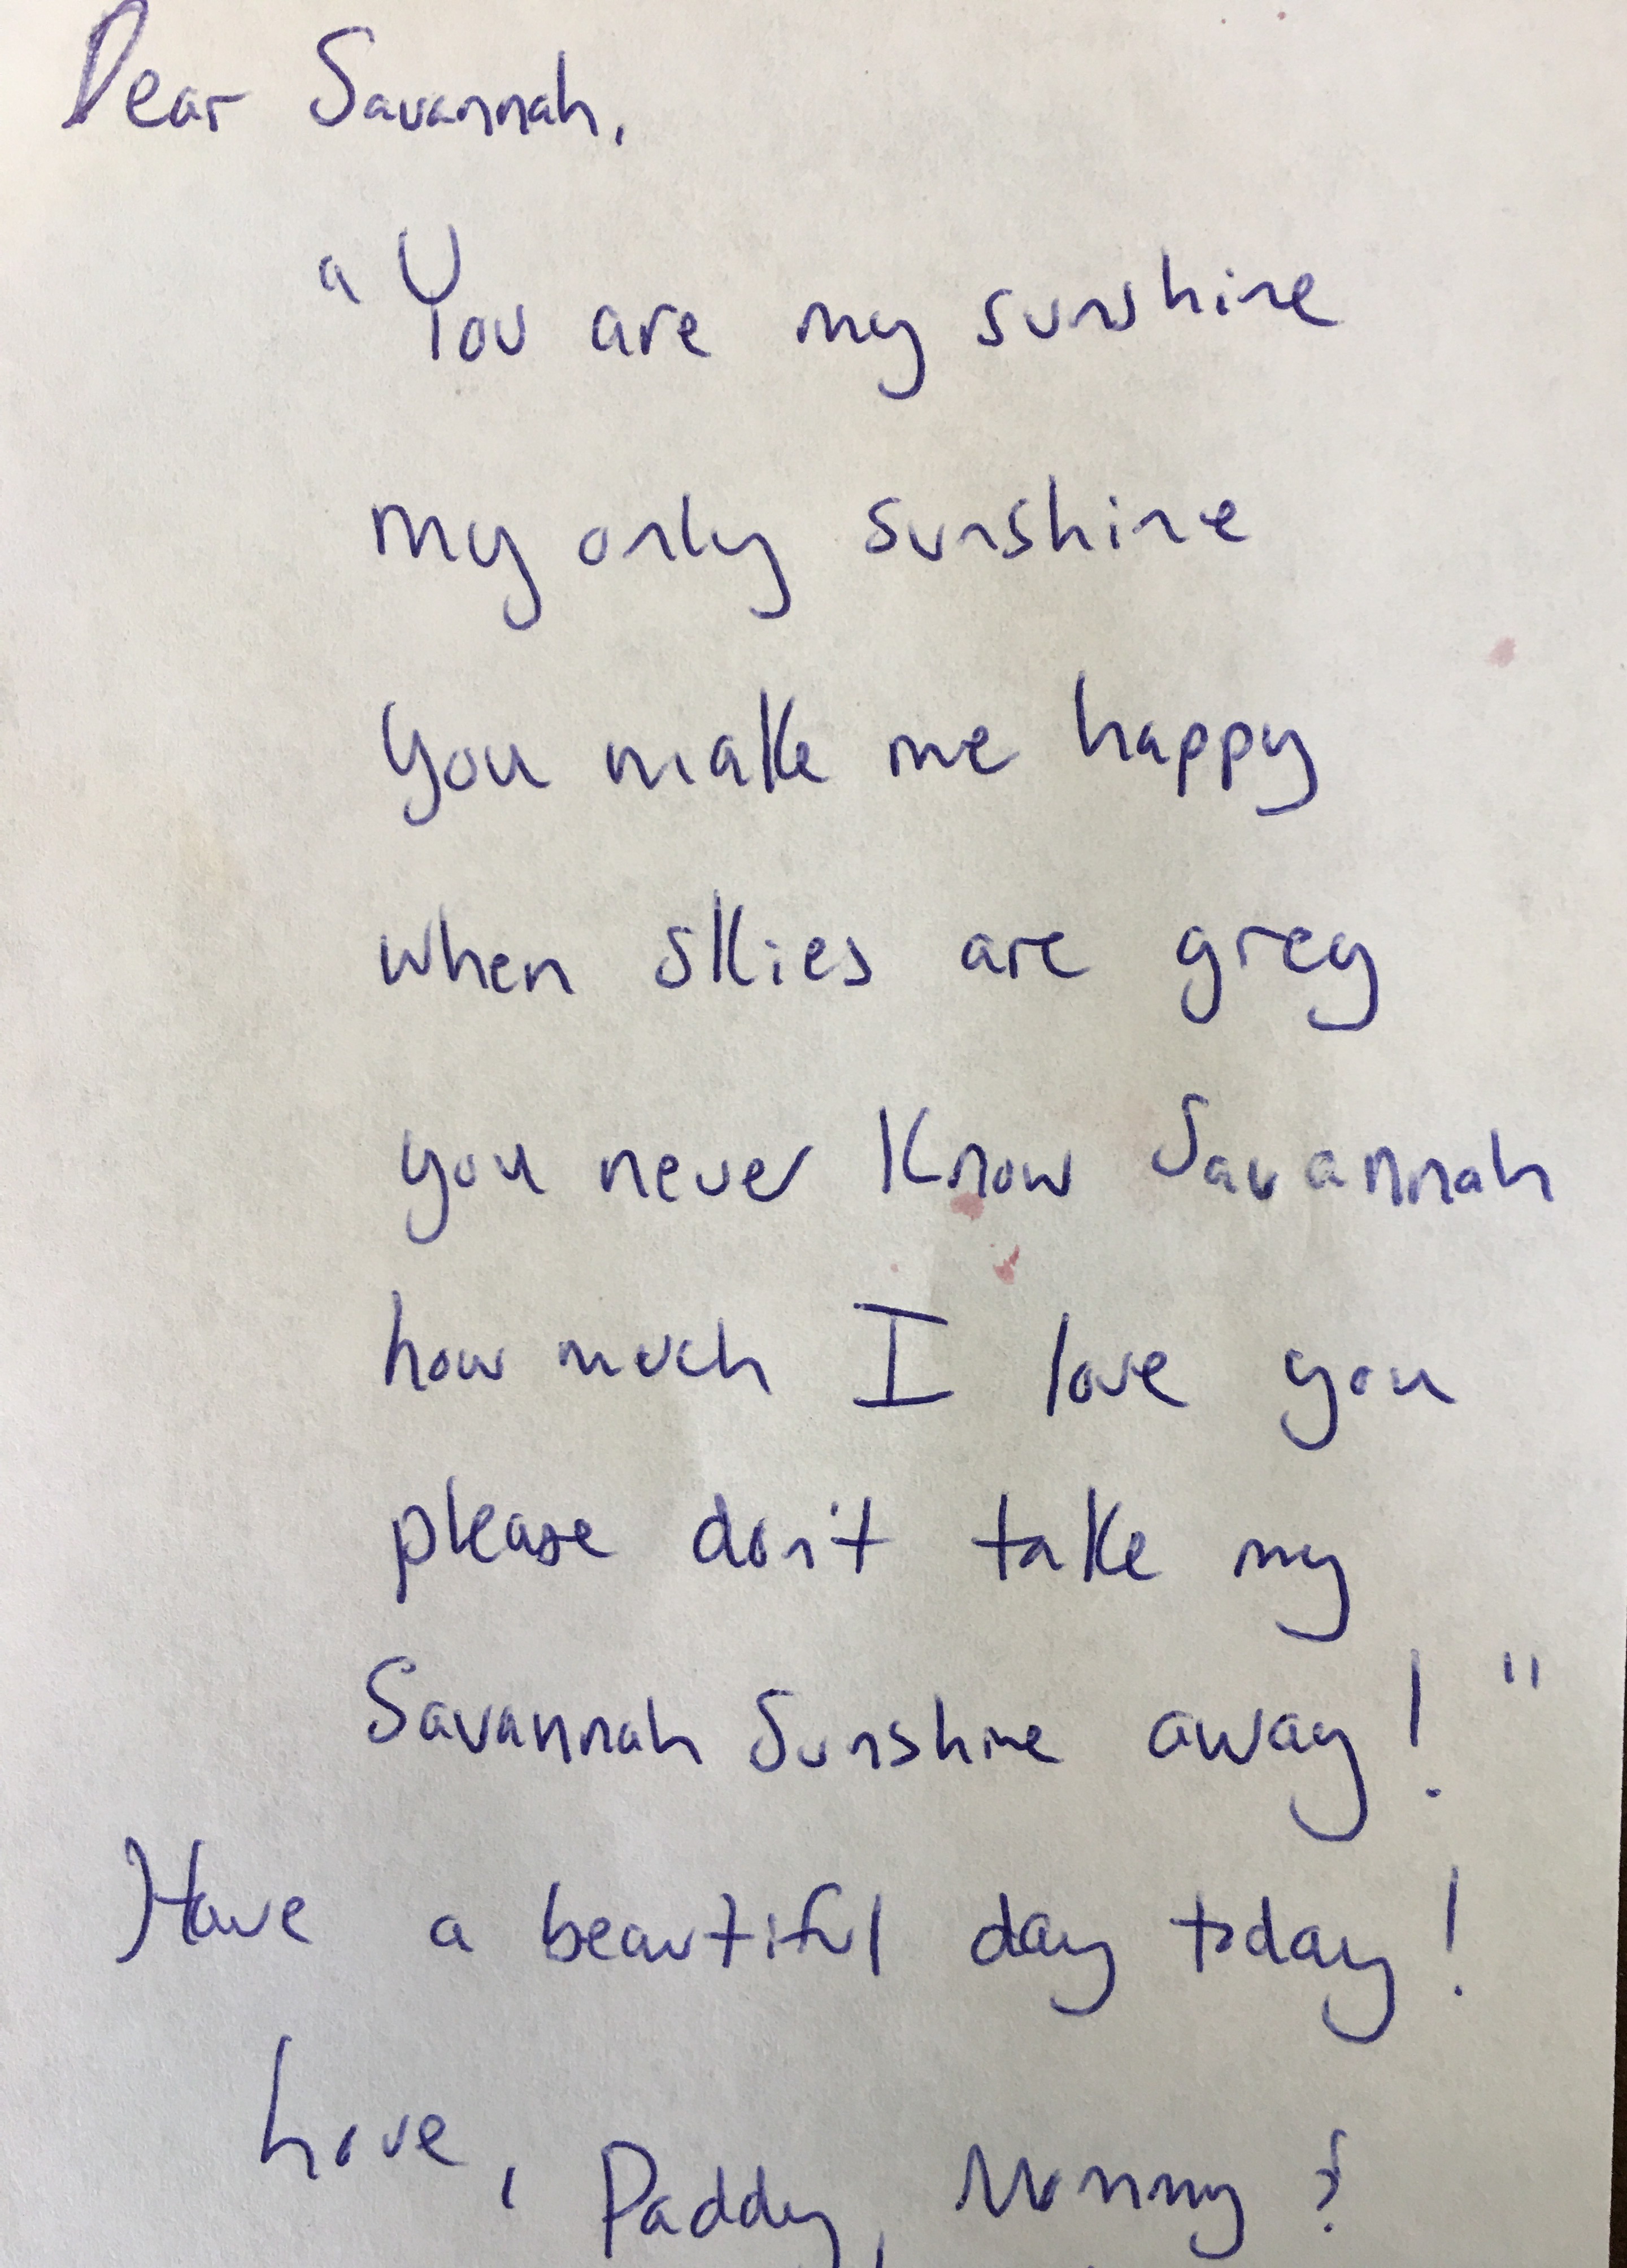 Dear Savannah,
"You are my sunshine
my only sunshine
you make me happy
when skies are grey
you never know Savannah
how much I love you
please don't take my
Savannah Sunshine away!"
Have a beautiful day today!
Love, Daddy, Mommy &